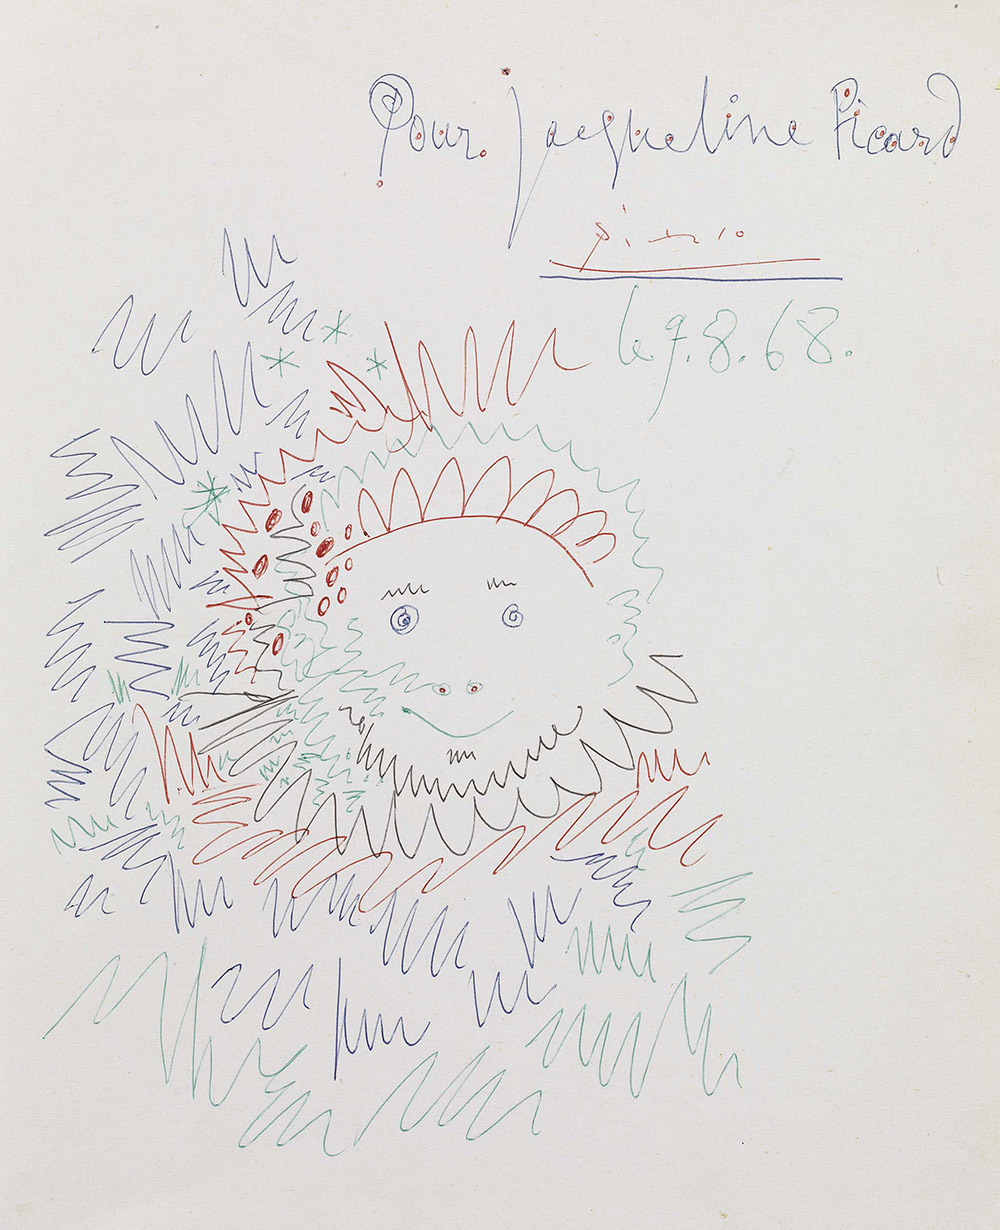 Pour Jacqueline Picard
Picasso
le 9.8.68.